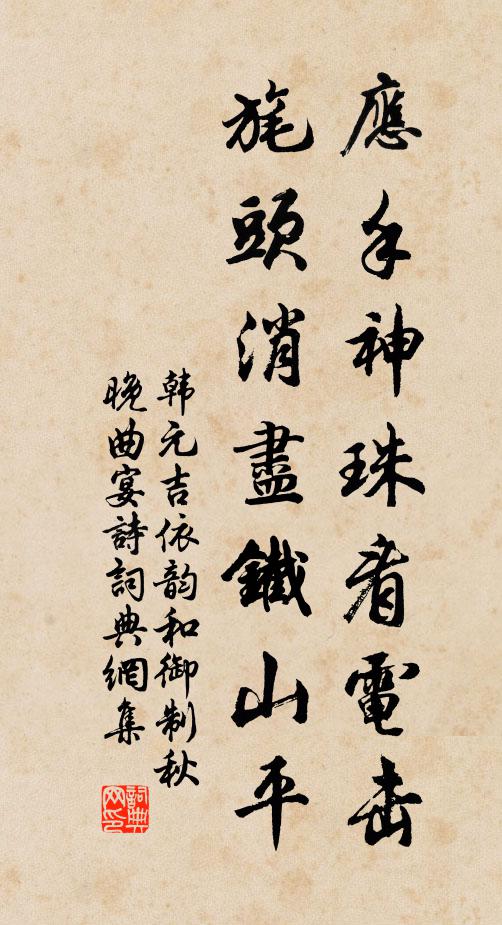 應手神珠看電击
旄頭消盡鐵山平
韩元吉依韵和御制秋
晚曲宴詩詞典網集
詞典网印